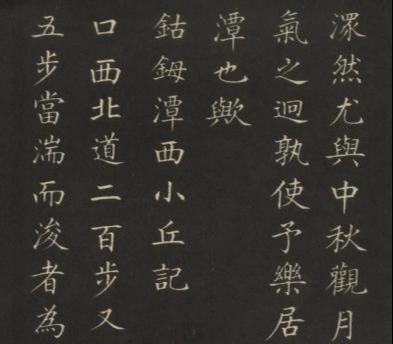 潀然尤與中秋觀月
氣之迥孰使予樂居
潭也歟
鈷鉧潭西小丘記
口西北道二百步又
五步當湍而浚者為